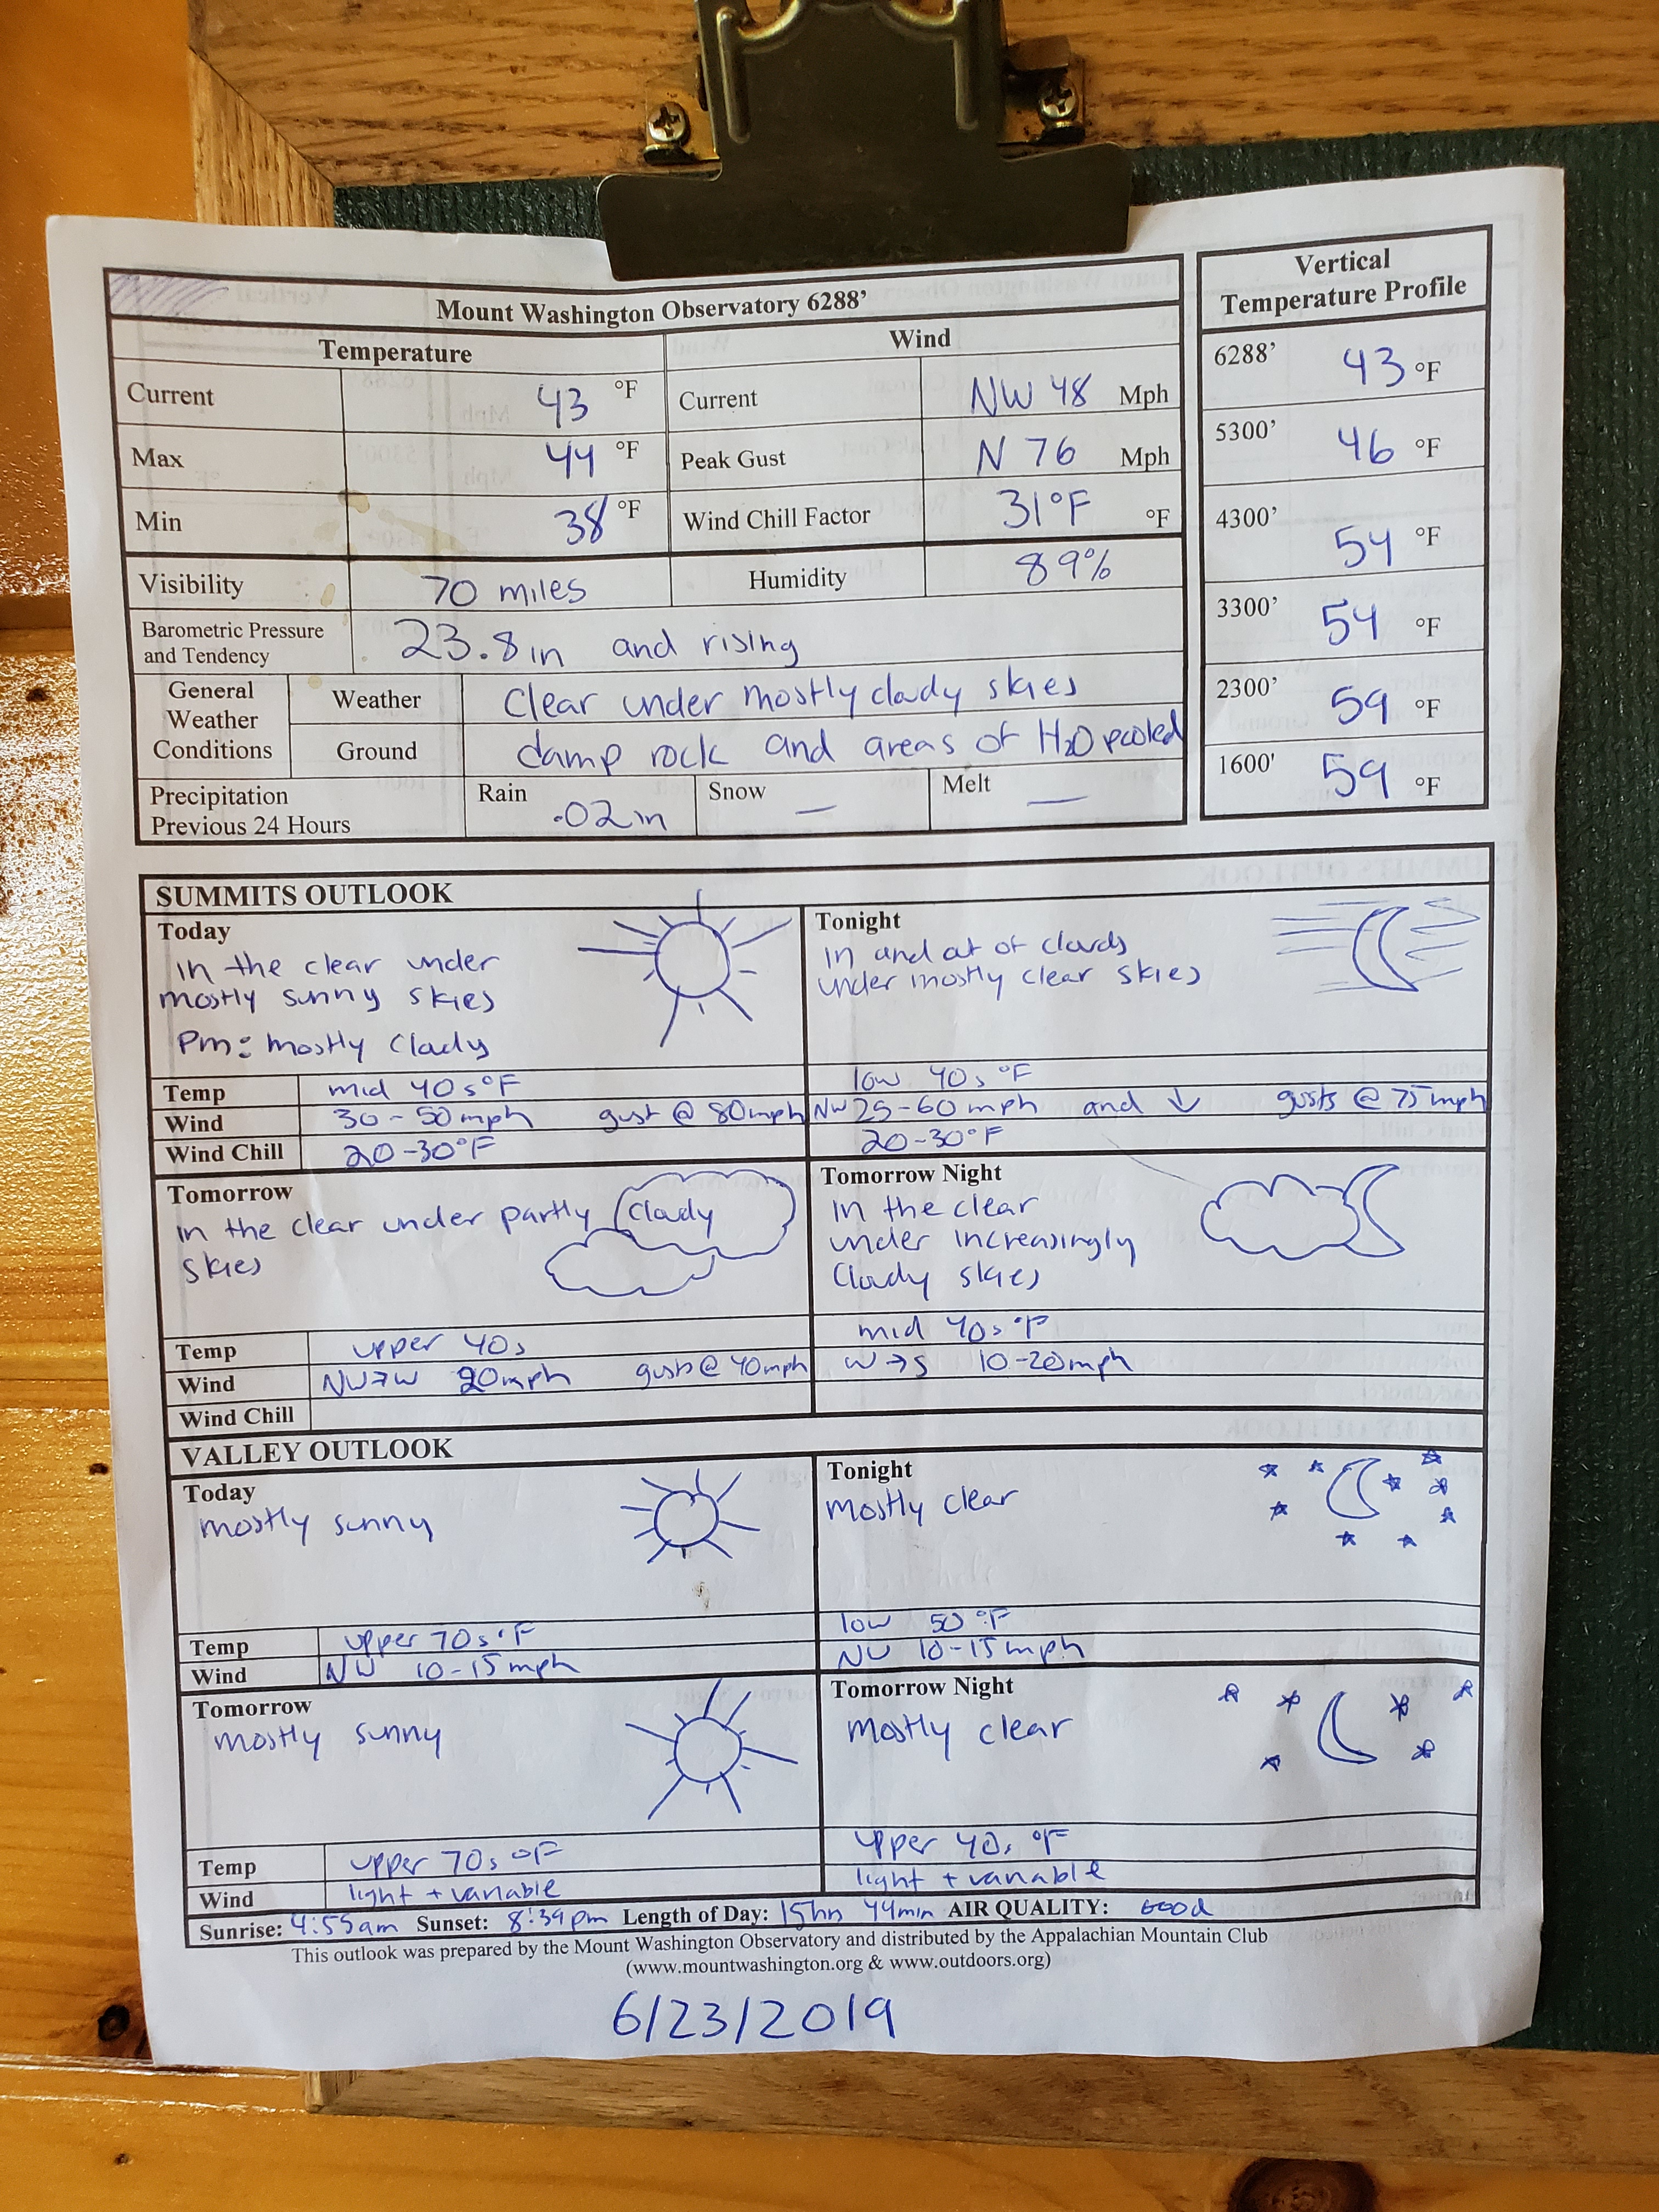 Mount Washington Observatory 6288'
Temperature Wind
Current 43 °F Current NW 48 Mph
Max 44 °F Peak Gust N 76 Mph
Min 38 °F Wind Chill Factor 31°F °F
Visibility 70 miles Humidity 89%
Barometric Pressure and Tendency 23.8in and rising
General Weather Conditions Weather Clear under mostly cloudy skies
Ground damp rock and areas of H2O pooled
Precipitation Previous 24 Hours Rain .02in Snow — Melt —
Vertical
Temperature Profile
6288' 43 °F
5300' 46 °F
4300' 54 °F
3300' 54 °F
2300' 59 °F
1600' 59 °F
SUMMITS OUTLOOK
Today
in the clear under
mostly sunny skies
Pm: mostly cloudy
Temp mid 40s°F
Wind 30-50mph gust @ 80mph
Wind Chill 20-30°F
Tonight
in and out of clouds
under mostly clear skies
low 40s °F
NW 25-60mph and ↓ gusts @ 75mph
20-30°F
Tomorrow
in the clear under partly cloudy
skies
Temp upper 40s
Wind NW→W 20mph gusts@40mph
Wind Chill
Tomorrow Night
in the clear
under increasingly
cloudy skies
mid 40s °F
W→S 10-20mph
VALLEY OUTLOOK
Today
mostly sunny
Temp upper 70s °F
Wind NW 10-15mph
Tonight
mostly clear
low 50 °F
NW 10-15mph
Tomorrow
mostly sunny
Temp upper 70s °F
Wind light + variable
Tomorrow Night
mostly clear
upper 40s °F
light + variable
Sunrise: 4:55am Sunset: 8:39pm Length of Day: 15hrs 44min AIR QUALITY: Good
This outlook was prepared by the Mount Washington Observatory and distributed by the Appalachian Mountain Club
(www.mountwashington.org & www.outdoors.org)
6/23/2019